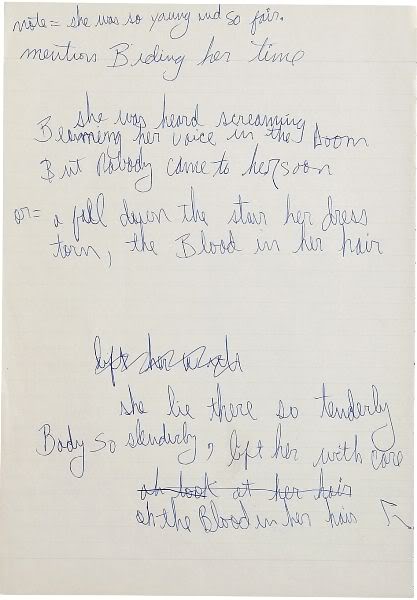 note = she was so young and so fair.
mention Biding her time
she was heard screaming
Beaming her voice in the Doom
But Nobody came to her soon
or = a fall down the stair her dress
torn, the Blood in her hair
left her
she lie there so tenderly
Body so slenderly, lift her with care
oh look at her hair
oh the Blood in her hair